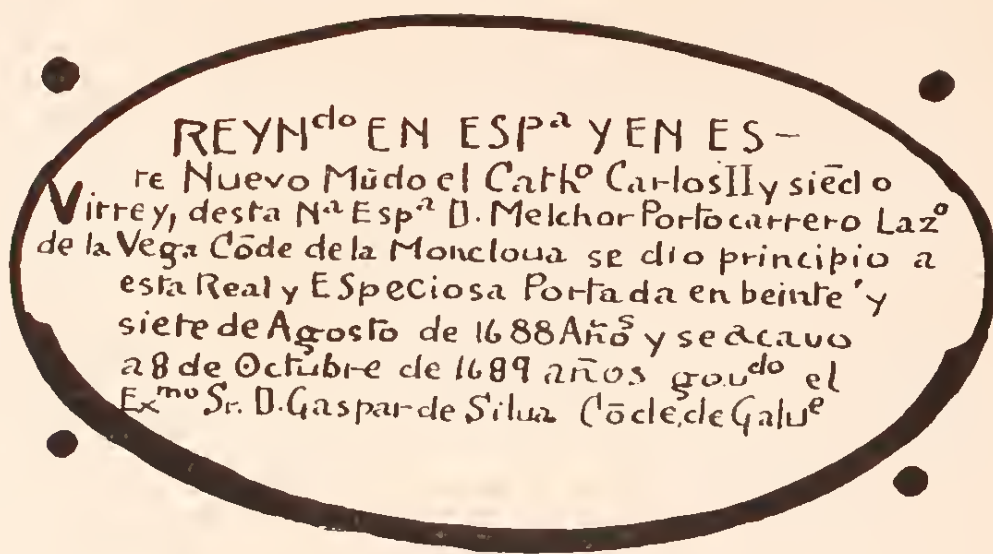 REYNdo EN ESPa Y EN ES-
te Nuevo Mūdo el Cathº Carlos II y siēdo
Virrey, desta Nª Espª D. Melchor Portocarrero Lazº
de la Vega Cōde de la Moncloua se dio principio a
esta Real y ESpeciosa Portada en beinte y
siete de Agosto de 1688 Añs y se acavo
a 8 de Octubre de 1689 años goudo el
Exmo Sr. D. Gaspar de Silua Cōde, de Galue